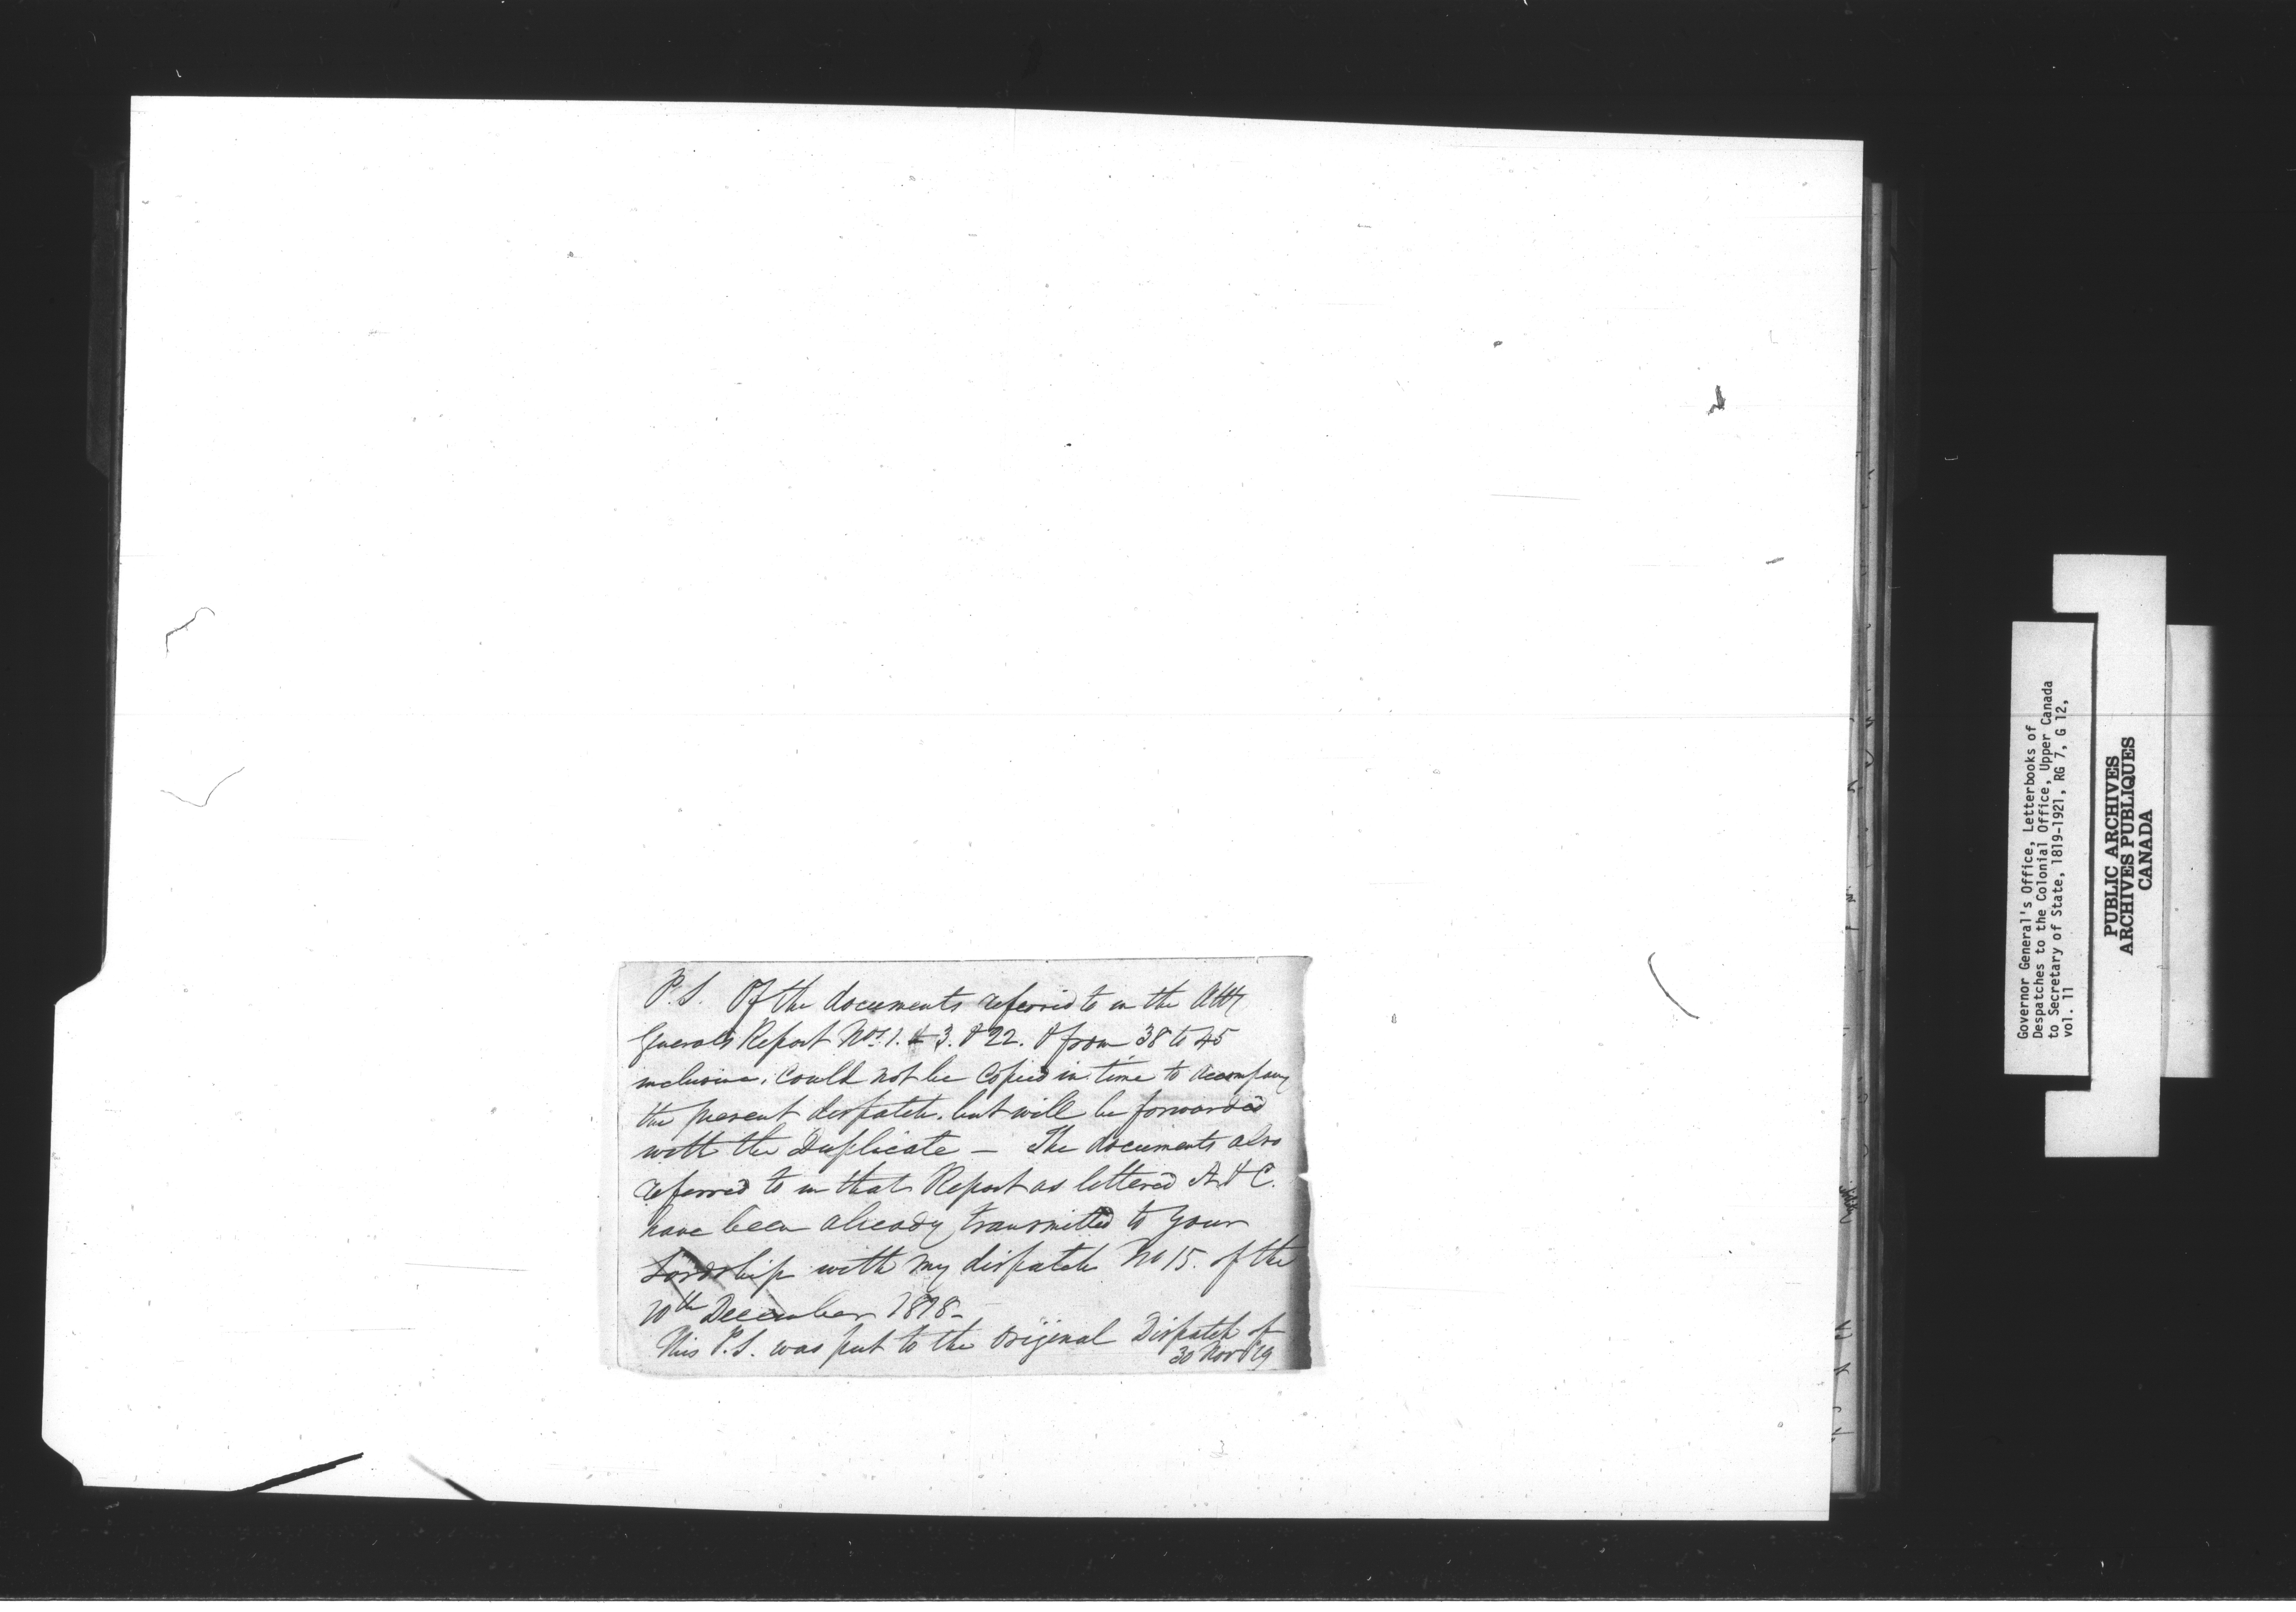 P.S. Of the documents referred to in the Atty
Generals Report Nos. 1. & 3. & 22. & from 38 to 45
inclusive, could not be Copied in time to accompany
the present dispatch, but will be forwarded
with the Duplicate — The documents also
referred to in that Report as lettered A & C.
have been already transmitted to Your
Lordship with my dispatch No 15. of the
10th December 1818-
This P.S. was put to the Original Dispatch of
30 Nov 1819
Governor General's Office, Letterbooks of
Despatches to the Colonial Office, Upper Canada
to Secretary of State, 1819-1921, RG 7, G 12,
vol. 11
PUBLIC ARCHIVES
ARCHIVES PUBLIQUES
CANADA